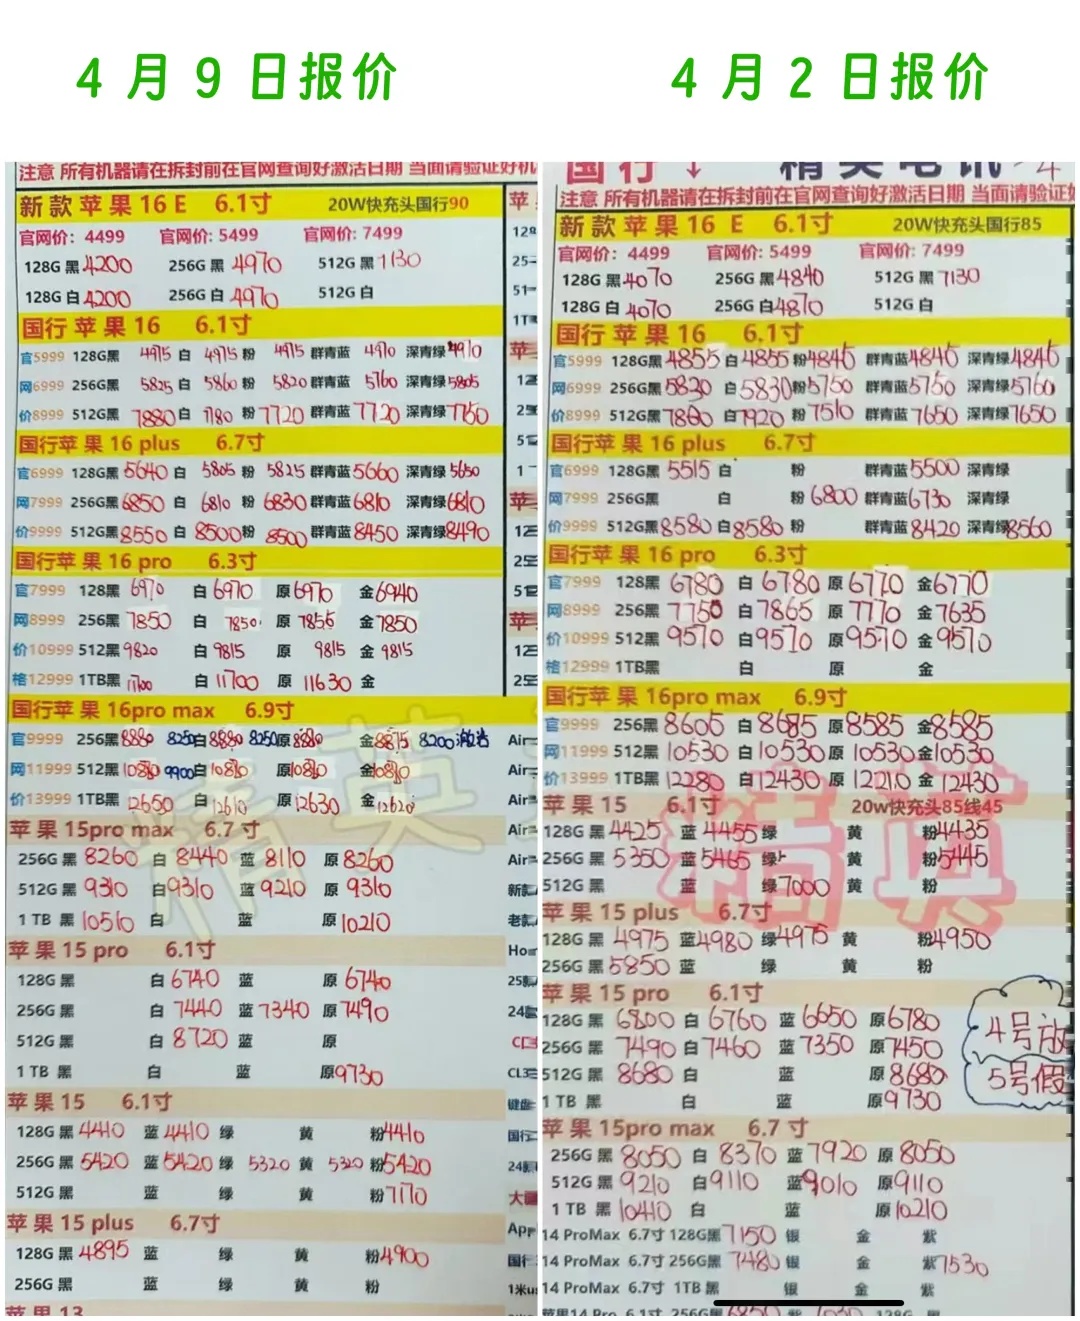 4月9日报价
注意 所有机器请在拆封前在官网查询好激活日期 当面请验证好机
新款苹果16 E 6.1寸 20W快充头国行90
官网价: 4499 官网价: 5499 官网价: 7499
128G 黑4200 256G 黑4970 512G 黑7130
128G 白4200 256G 白4970 512G 白
国行 苹果 16 6.1寸
官5999 128G黑 4975 白 4975 粉 4975 群青蓝 4970 深青绿4910
网6999 256G黑 5825 白 5860 粉 5820 群青蓝 5760 深青绿5805
价8999 512G黑 7880 白 7780 粉 7720 群青蓝 7720 深青绿7750
国行苹果 16 plus 6.7寸
官6999 128G黑 5640 白 5805 粉 5825 群青蓝 5660 深青绿5650
网7999 256G黑 6850 白 6810 粉 6830 群青蓝 6810 深青绿6810
价9999 512G黑 8550 白 8500 粉 8500 群青蓝 8450 深青绿8490
国行苹果 16 pro 6.3寸
官7999 128黑 6970 白 6970 原 6970 金6940
网8999 256黑 7850 白 7850 原 7855 金7850
价10999 512黑 9820 白 9815 原 9815 金 9815
格12999 1TB黑 11700 白 11700 原 11630 金
国行苹果 16pro max 6.9寸
官9999 256黑8880 8250白8880 8250原8880 金8875 8200激活
网11999 512黑10810 9900白10810 原10810 金10810
价13999 1TB黑 12650 白 12610 原 12630 金 12620
苹果 15pro max 6.7 寸
256G 黑 8260 白 8440 蓝 8110 原 8260
512G 黑 9310 白 9310 蓝 9210 原 9310
1 TB 黑 10510 白 蓝 原 10210
苹果 15 pro 6.1寸
128G 黑 白 6740 蓝 原 6740
256G 黑 白 7440 蓝 7340 原 7490
512G 黑 白 8720 蓝 原
1 TB 黑 白 蓝 原9730
苹果 15 6.1寸
128G 黑 4410 蓝 4410 绿 黄 粉4410
256G 黑 5420 蓝 5420 绿 5320 黄 5320 粉5420
512G 黑 蓝 绿 黄 粉7170
苹果 15 plus 6.7寸
128G 黑 4895 蓝 绿 黄 粉4900
256G 黑 蓝 绿 黄 粉
苹果 13
精英
4月2日报价
国行↓ 精英电讯
注意 所有机器请在拆封前在官网查询好激活日期 当面请验证
新款 苹果 16 E 6.1寸 20W快充头国行85
官网价: 4499 官网价: 5499 官网价: 7499
128G 黑4070 256G 黑4840 512G 黑 7130
128G 白 4070 256G 白4870 512G 白
国行 苹果 16 6.1寸
官5999 128G黑4855 白4855 粉4845 群青蓝4845 深青绿4845
网6999 256G黑5820 白5830 粉5750 群青蓝5750 深青绿5760
价8999 512G黑7860 白7920 粉 7510 群青蓝7650 深青绿7650
国行苹果 16 plus 6.7寸
官6999 128G黑 5515 白 粉 群青蓝5500 深青绿
网7999 256G黑 白 粉 6800 群青蓝6730 深青绿
价9999 512G黑8580 白8580 粉 群青蓝8420 深青绿8560
国行苹果 16 pro 6.3寸
官7999 128黑 6780 白 6780 原 6770 金6770
网8999 256黑 7750 白 7865 原 7770 金7635
价10999 512黑9570 白9570 原 9570 金9570
格12999 1TB黑 白 原 金
国行苹果 16pro max 6.9寸
官9999 256黑 8605 白 8685 原8585 金8585
网11999 512黑 10530 白 10530 原 10530 金10530
价13999 1TB黑12280 白 12430 原 12210 金 12430
苹果 15 6.1寸 20w快充头85线45
128G 黑 4425 蓝 4455 绿 黄 粉4435
256G 黑 5350 蓝5465 绿 黄 粉5445
512G 黑 蓝 绿7000 黄 粉
苹果 15 plus 6.7寸
128G 黑 4975 蓝4980 绿4975 黄 粉4950
256G 黑 5850 蓝 绿 黄 粉
苹果 15 pro 6.1寸
128G 黑 6800 白 6760 蓝 6650 原6780
256G 黑 7490 白7460 蓝 7350 原7450
512G 黑 8680 白 蓝 原 8680
1 TB 黑 白 蓝 原9730
4号放
5号假
苹果 15pro max 6.7 寸
256G 黑 8050 白 8370 蓝 7920 原 8050
512G 黑 9210 白9110 蓝9010 原 9110
1 TB 黑10410 白 蓝 原10210
14 ProMax 6.7寸 128G黑7150 银 金 紫
14 ProMax 6.7寸 256G黑 7480 银 金 紫7530
14 ProMax 6.7寸 1TB 黑 银 金 紫
精英